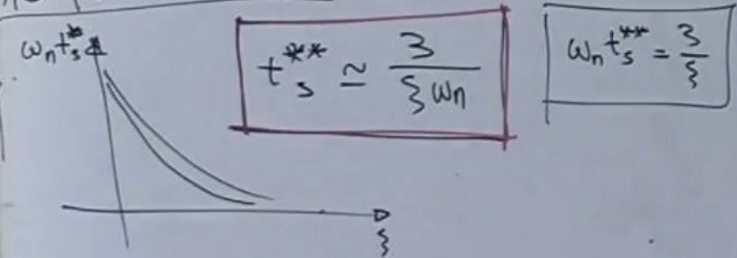 ωₙtₛ*
tₛ** ≃ 3 / ξωₙ
ωₙtₛ** = 3 / ξ
ξ